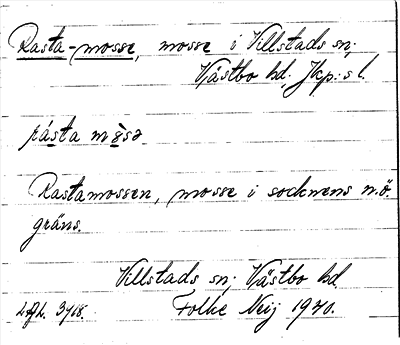 Rasta-mosse, mosse i Villstads sn;
Västbo hd. Jkp:s l.
rásta mòsə
Rastamossen, mosse i socknens n.ö
gräns.
Villstads sn; Västbo hd.
Folke Neij 1940.